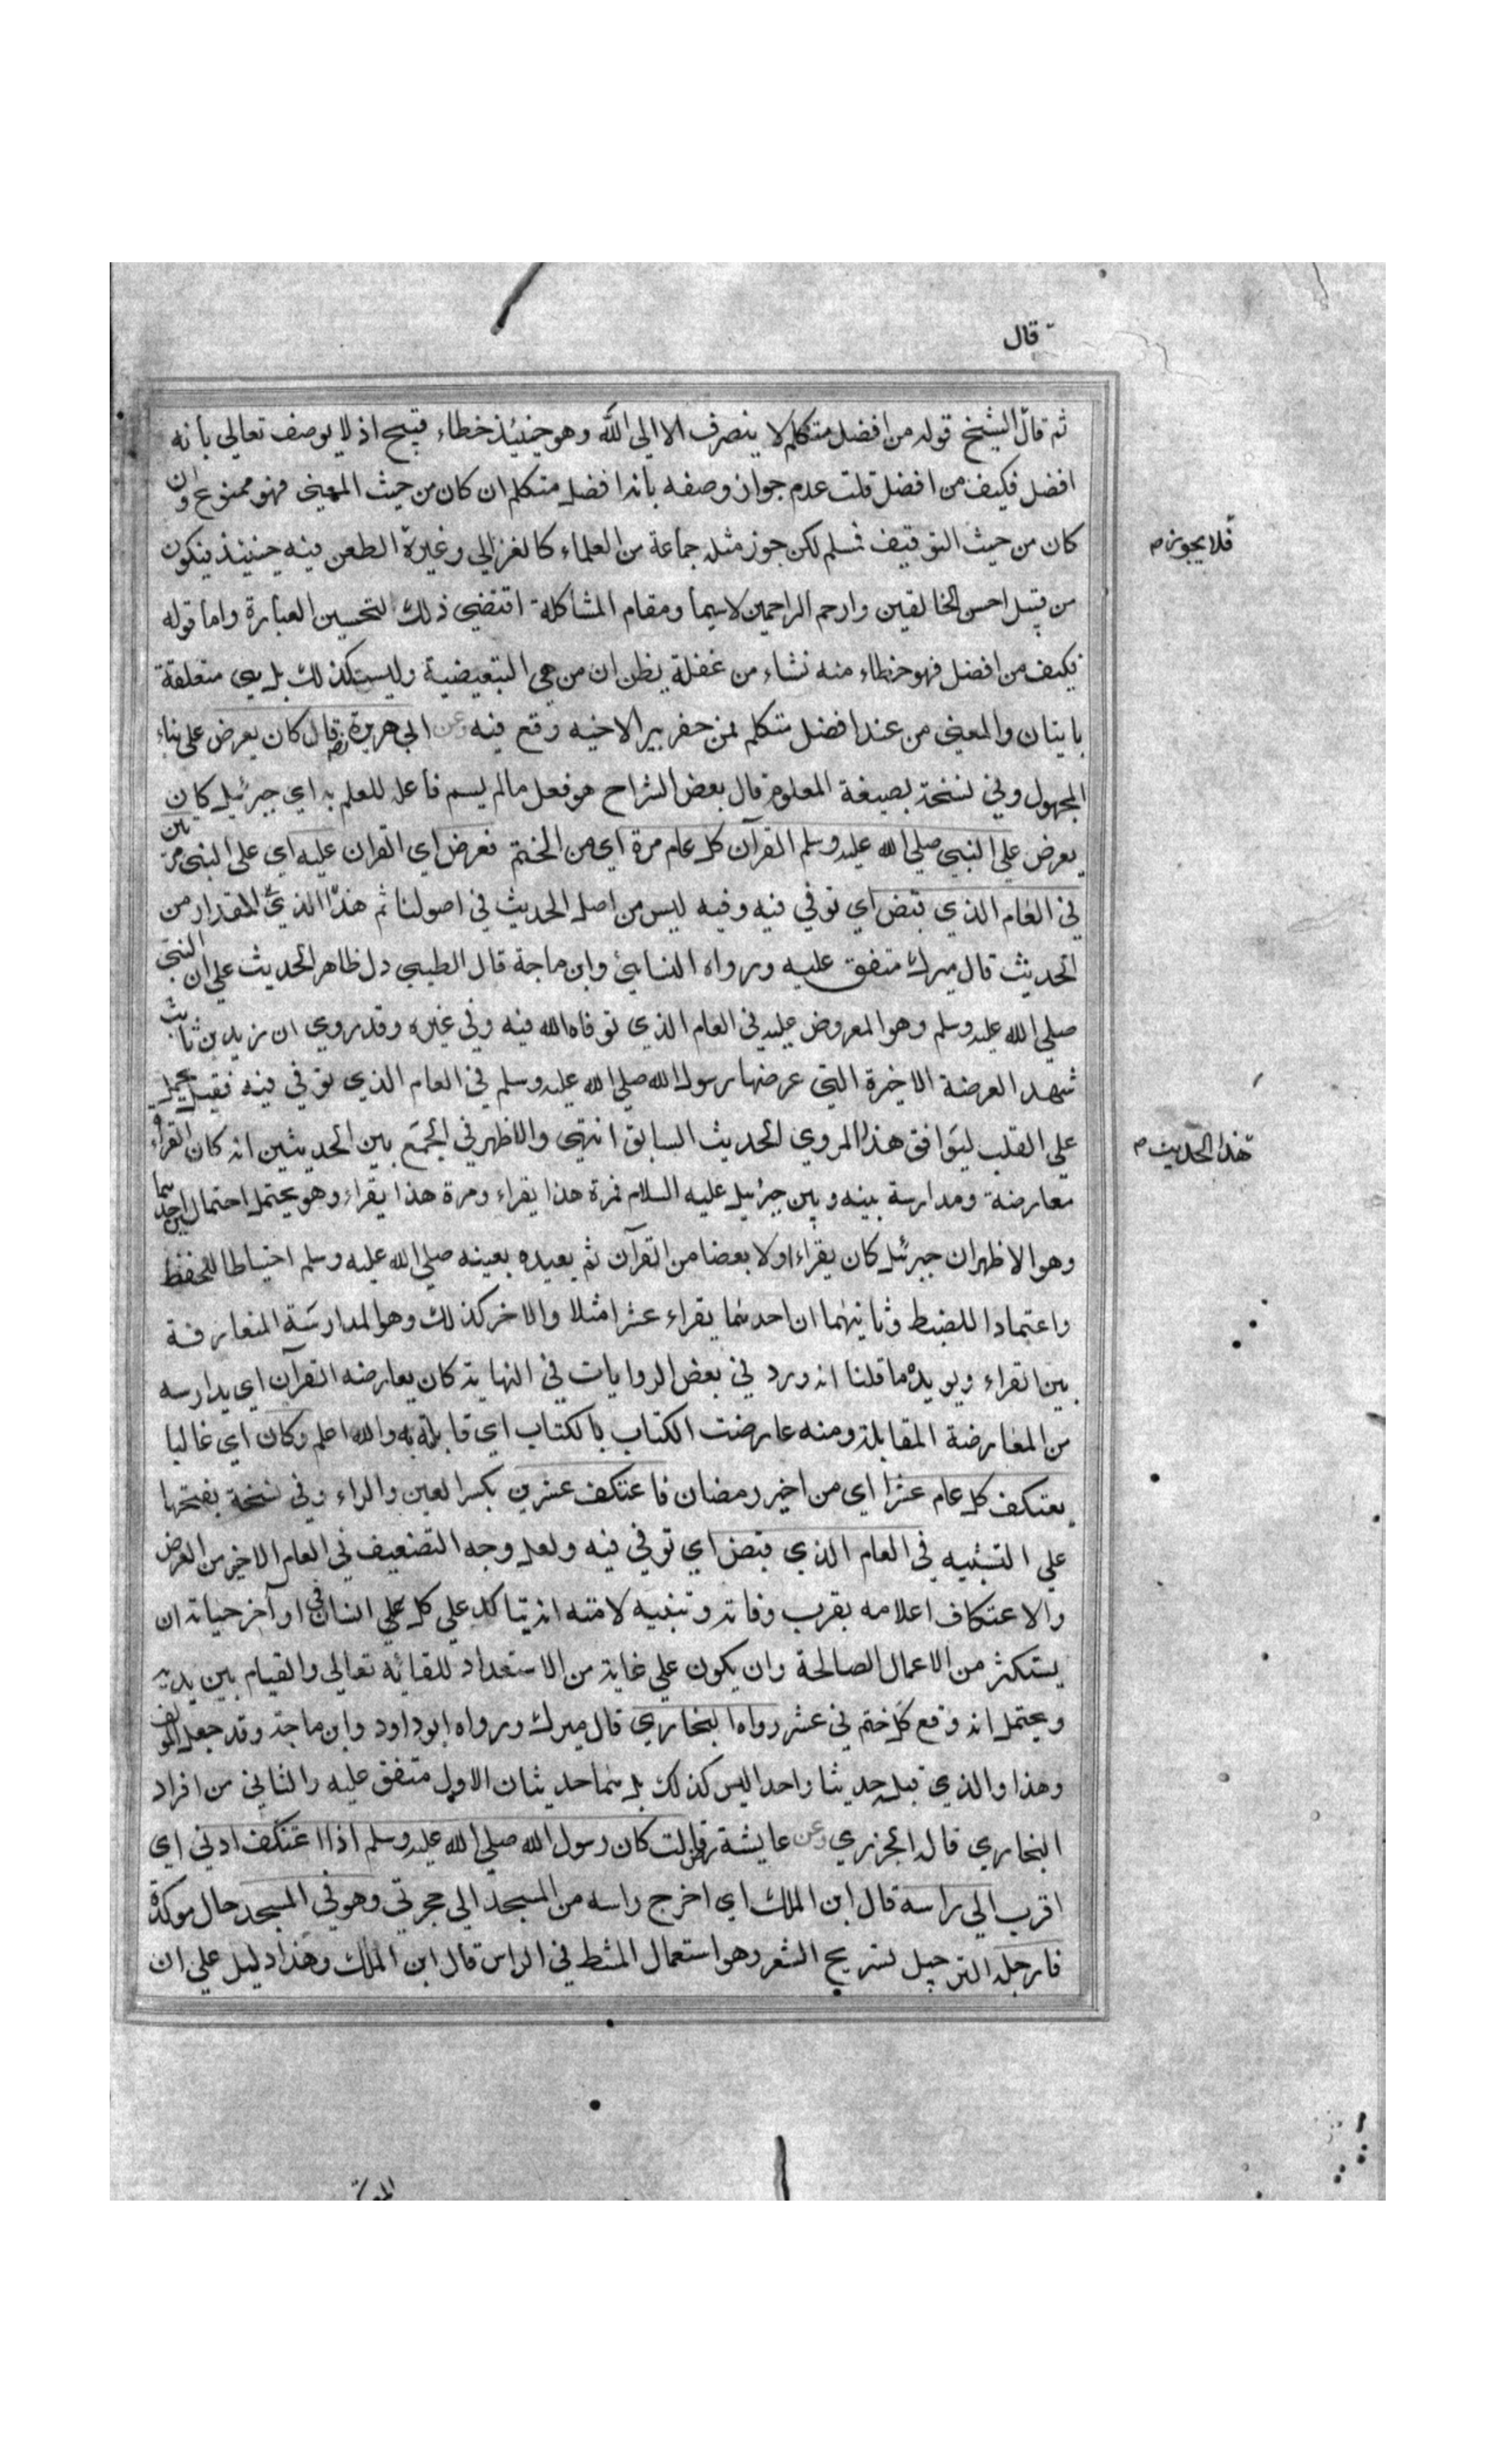 قال
ثم قال الشيخ قوله من افضل متكلم لا ينصرف الا الى الله وهو حينئذ خطاء قبيح اذ لا يوصف تعالي بانه
افضل فكيف من افضل قلت عدم جواز وصفه بانه افضل متكلم ان كان من حيث المعني فهو ممنوع وان
كان من حيث التوقيف فسلم لكن جوز مثله جماعة من العلماء كالغزالي وغيرة الطعن فيه حينئذ فيكون
فلا يجوز م
من قبيل احسن الخالقين وارحم الراحمين لاسيما ومقام المشاكلة اقتضي ذلك لتحسين العبارة واما قوله
فكيف من افضل فهو خطاء منه نشاء من غفلة يظن ان من هي التبعيضية وليست كذلك بل هي متعلقة
باتيان والمعني من عند افضل متكلم فمن حفر بير الاخيه وقع فيه وعن ابي هريرة رضه قال كان يعرض علي بناء
المجهول وفي نسخة بصيغة المعلوم قال بعض الشراح هو فعل ما لم يسم فاعله للعلم به اي جبرئيل كان
يعرض علي النبي صلي الله عليه وسلم القرآن كل عام مرة اي من الختم فعرض اي القران عليه اي علي النبي مرتين
في العام الذي قبض اي توفي فيه وفيه ليس من اصل الحديث في اصولنا ثم هذا الذي المقدار من
الحديث قال ميرك متفق عليه ورواه النسائي وابن ماجة قال الطيبي دل ظاهر الحديث علي ان النبي
صلي الله عليه وسلم وهو المعروض عليه في العام الذي توفاه الله فيه وفي غيره وقد روي ان زيد بن ثابت
شهد العرضة الاخيرة التي عرضها رسول الله صلي الله عليه وسلم في العام الذي توفي فيه فقيل يحمل
علي القلب ليوافق هذا المروي الحديث السابق انتهي والاظهر في الجمع بين الحديثين انه كان القراءة
هذا الحديث م
معارضة ومدارسة بينه وبين جبرئيل عليه السلام فمرة هذا يقراء ومرة هذا يقراء وهو يحتمل احتمالين احدهما
وهو الاظهر ان جبرئيل كان يقراء اولا بعضا من القرآن ثم يعيده بعينه صلي الله عليه وسلم احتياطا للحفظ
واعتمادا للضبط وثانيهما ان احدهما يقراء عشرا مثلا والاخر كذلك وهو المدارسة المتعارفة
بين القراء ويويده ما قلنا انه ورد في بعض الروايات في النهاية كان يعارضه القرآن اي يدارسه
من المعارضة المقابلة ومنه عارضت الكتاب بالكتاب اي قابلته به والله اعلم وكان اي غالبا
يعتكف كل عام عشرا اي من اخير رمضان فاعتكف عشرين بكسر العين والراء وفي نسخة بفتحها
علي التثنيه في العام الذي قبض اي توفي فيه ولعل وجه التضعيف في العام الاخير من العرض
والاعتكاف اعلامه بقرب وفاته وتنبيه لامته انه يتاكد علي كل علي انسان في اواخر حياته ان
يستكثر من الاعمال الصالحة وان يكون علي غاية من الاستعداد للقائه تعالي والقيام بين يديه
ويحتمل انه وقع كل ختم في عشر رواه البخاري قال ميرك ورواه ابو داود وابن ماجة وقد جعل المولف
وهذا والذي قبله حديثا واحدا ليس كذلك بل هما حديثان الاول متفق عليه والثاني من افراد
البخاري قاله الجزري وعن عايشة رض قالت كان رسول الله صلي الله عليه وسلم اذا اعتكف ادني اي
اقرب الي راسه قال ابن الملك اي اخرج راسه من المسجد الي حجرتي وهو في المسجد حال موكدة
فارجله الترجيل تسريح الشعر وهو استعمال المشط في الراس قال ابن الملك وهذا دليل علي ان